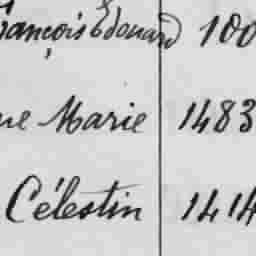 François Edouard 100
ne Marie 1483
Célestin 1414